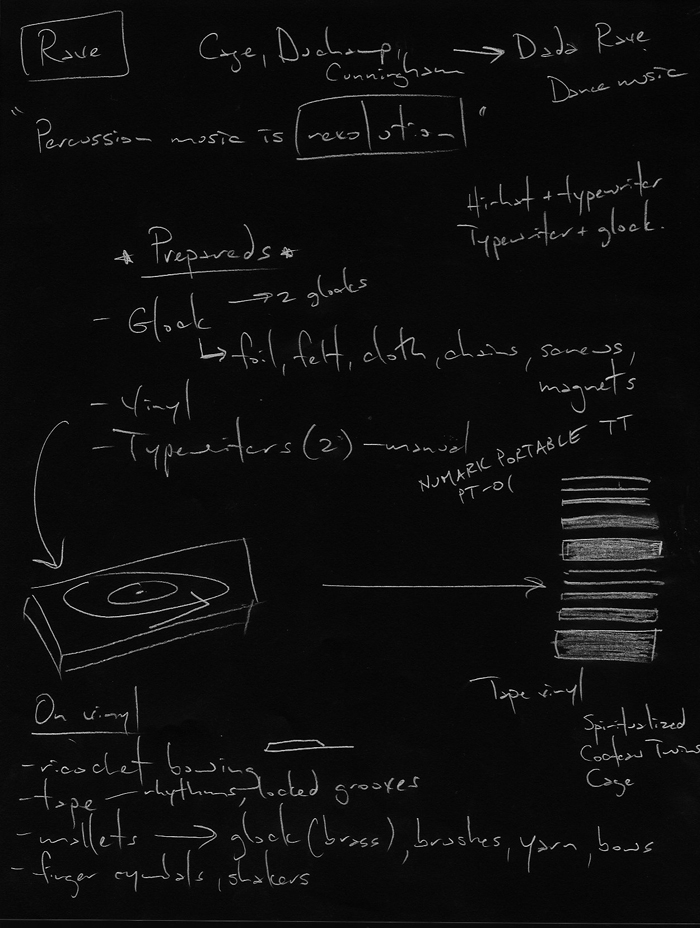 Rave
Cage, Duchamp, Cunningham → Dada Rave
Dance music
"Percussion music is revolution"
Hi-hat + typewriter
Typewriter + glock.
* Prepareds *
- Glock → 2 glocks
↳ foil, felt, cloth, chains, screws,
magnets
- Vinyl
- Typewriters (2) - manual
NUMARK PORTABLE TT
PT-01
Tape vinyl
On vinyl
Spiritualized
Cocteau Twins
Cage
- ricochet bowing
- tape - rhythms, locked grooves
- mallets → glock (brass), brushes, yarn, bows
- finger cymbals, shakers